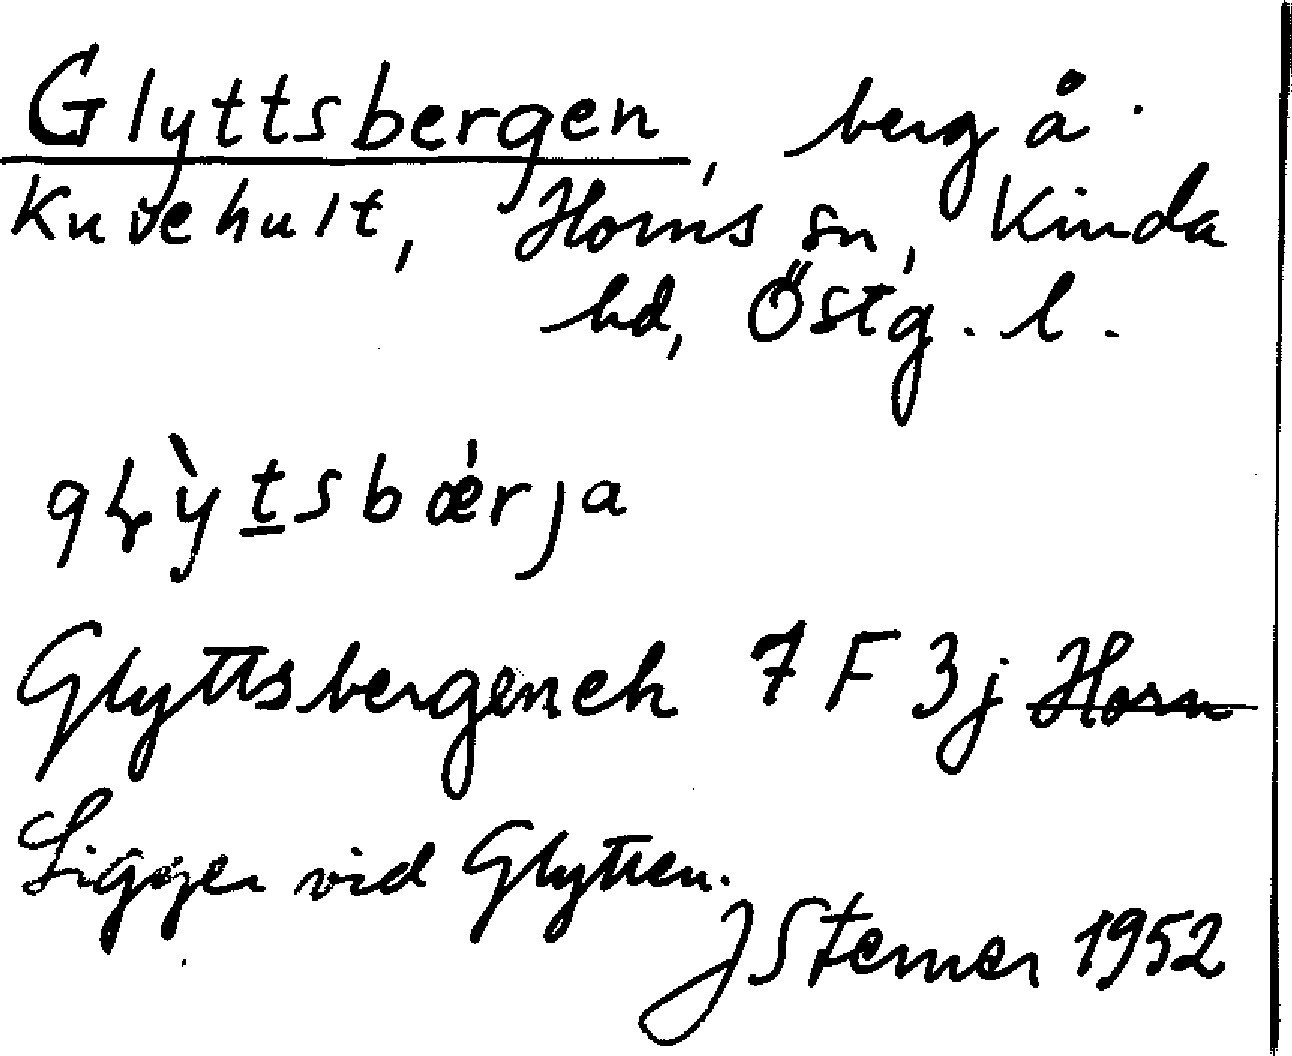 Glyttsbergen, berg å
Kuvehult, Horns sn, Kinda
hd, Östg. l.
Glyttsbergen ek 7 F 3j Horn
Ligger vid Glytten.
J Sterner 1952